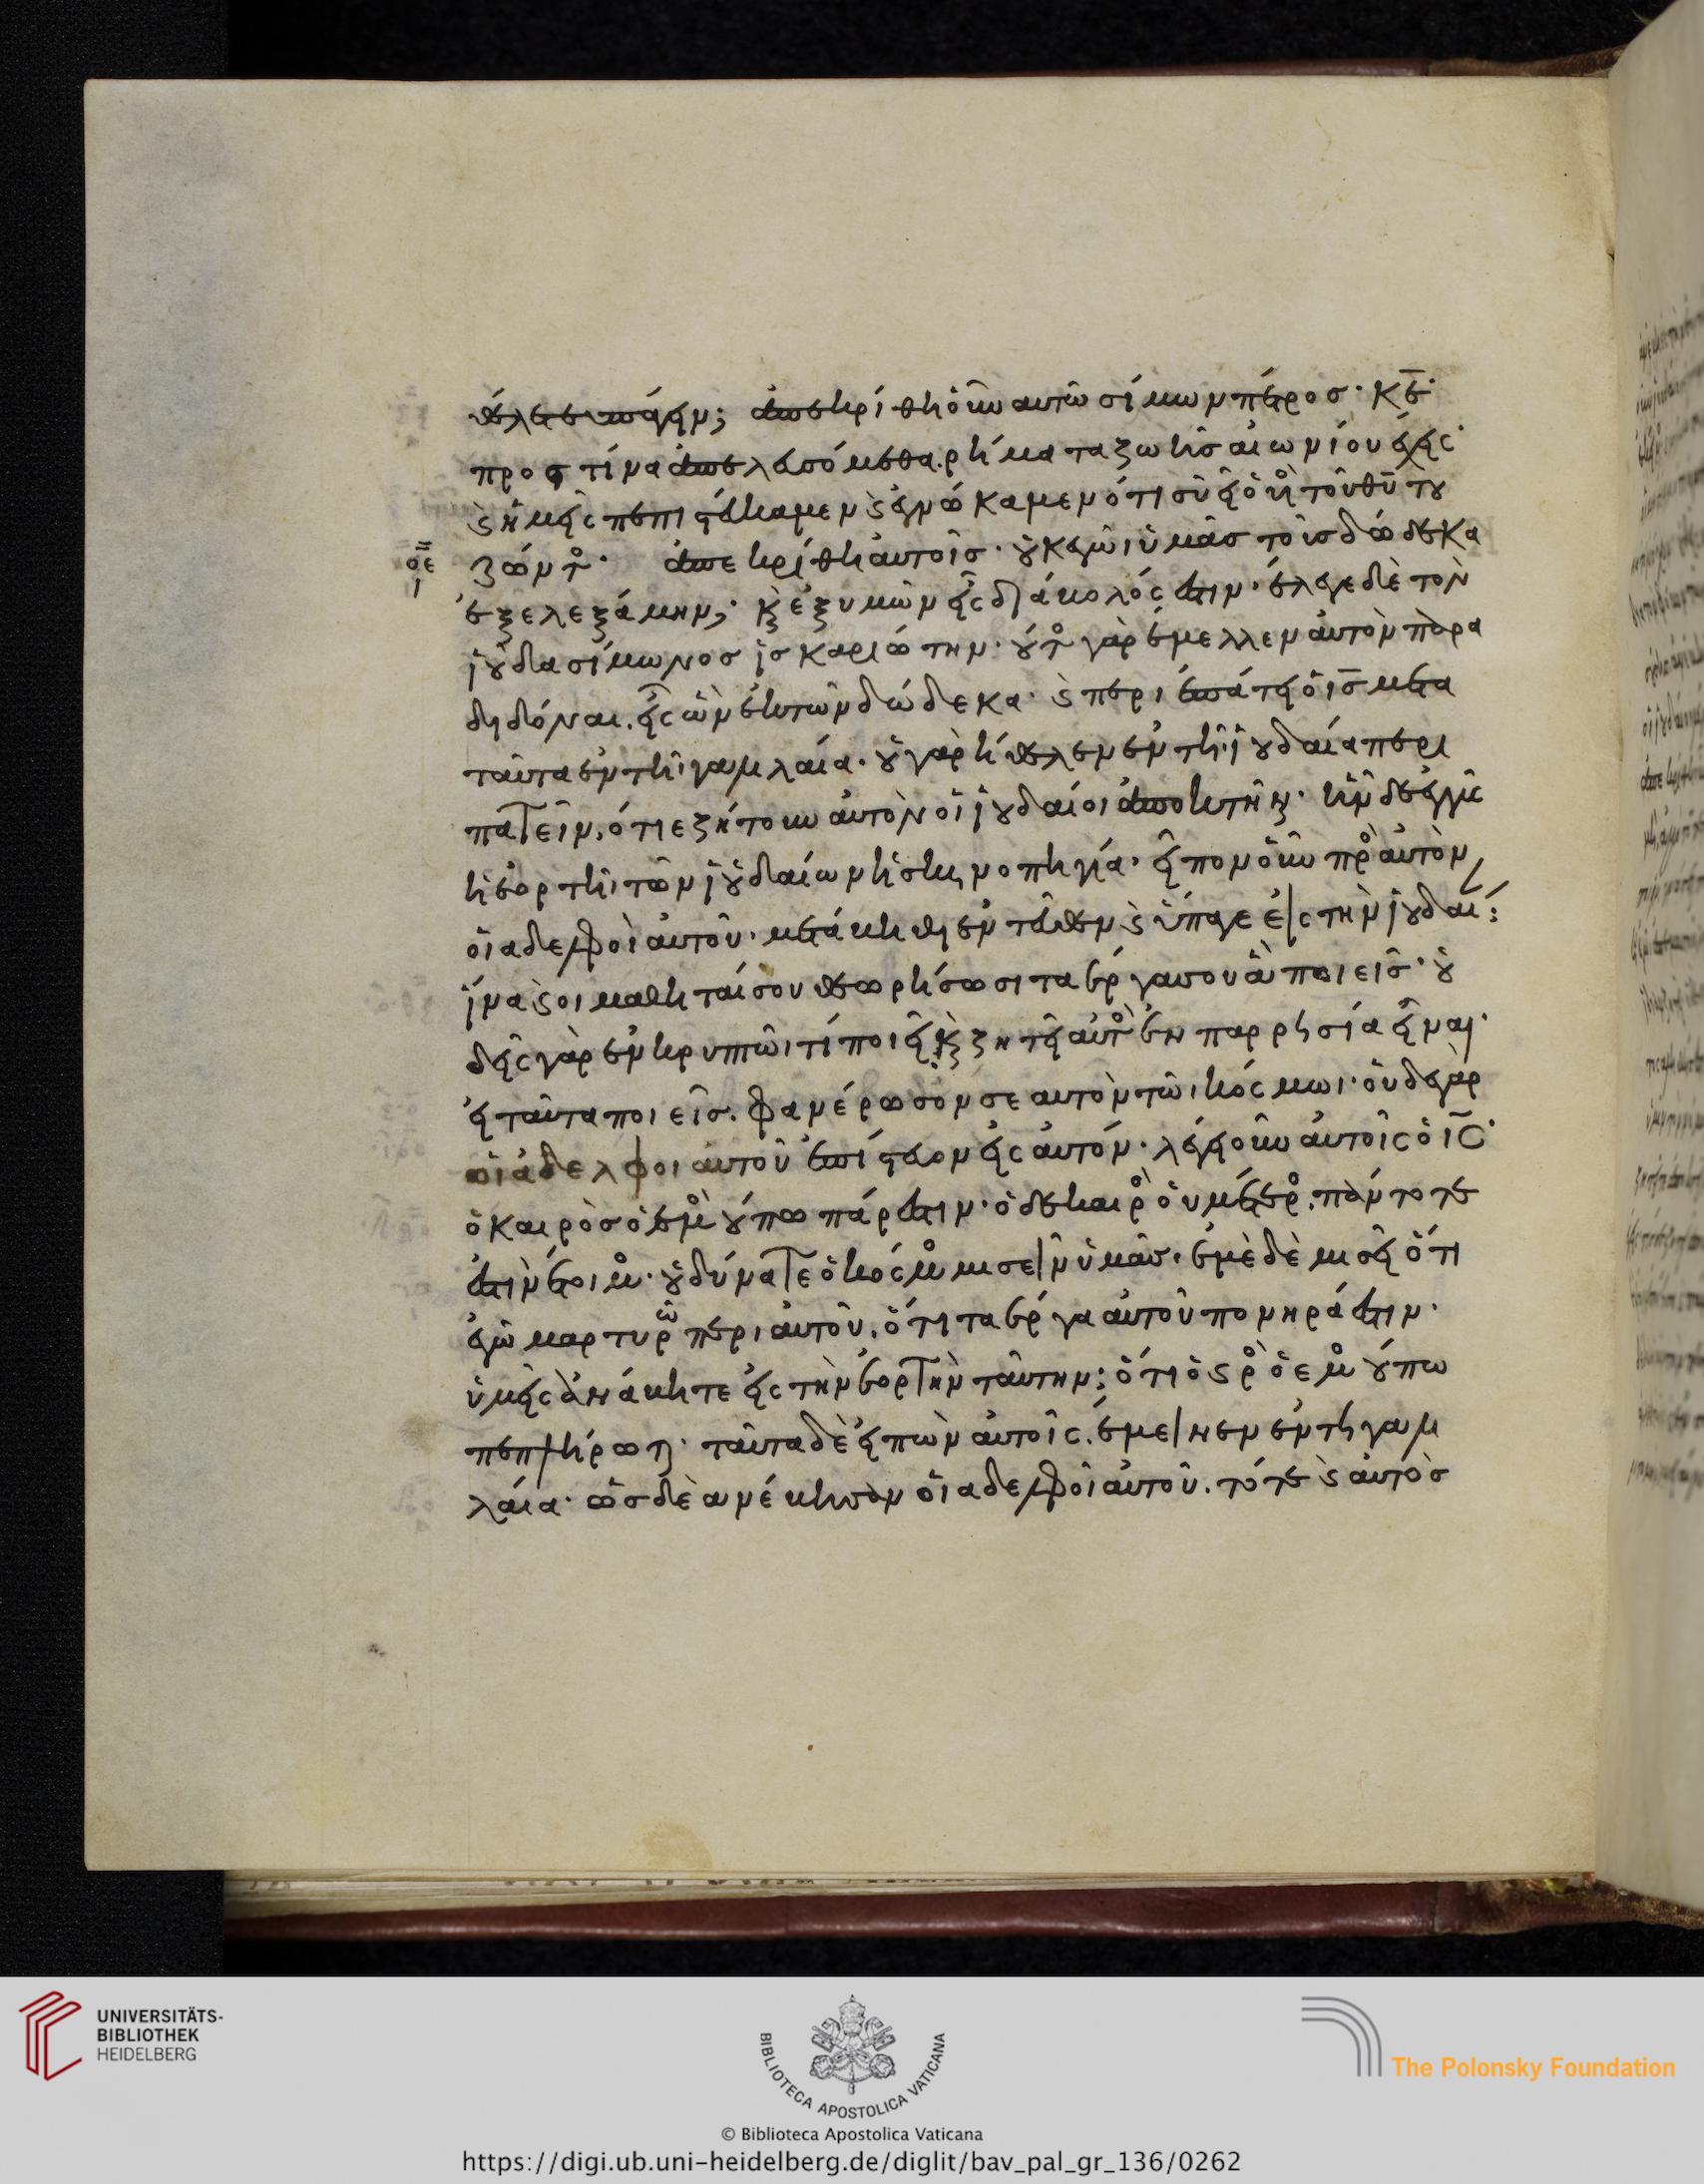 θέλετε ὑπάγειν; ἀπεκρίθη οὖν αὐτῶ σίμων πέτρος· κε̅·
προς τίνα ἀπελευσόμεθα. ῥήματα ζωῆς αἰωνίου ἔχεις·
ϗ ἡμεῖς πεπιστεύκαμεν ϗ ἐγνώκαμεν ὅτι σὺ εἶ ὁ υἱὸς τοῦ θῡ τοῦ
ζῶντος· ἀπεκρίθη αὐτοῖς· οὐκ ἐγὼ ὑμᾶς τοὺς δώδεκα
οε
ι
ἐξελεξάμην; ϗ ἐξ ὑμῶν εἷς διάβολός ἐστιν· ἔλεγε δὲ τὸν
ἰούδα σίμωνος ἰσκαριώτην· οὗτος γὰρ ἔμελλεν αὐτὸν παρα
διδόναι. εἷς ὢν ἐκ τῶν δώδεκα· ϗ περιεπάτει ὁ ις̅ μετα
ταῦτα ἐν τῆ γαλιλαία· οὐ γὰρ ἤθελεν ἐν τῆ ἰουδαία περι
πατεῖν, ὅτι εζήτουν αὐτὸν οἱ ἰουδαίοι ἀποκτεῖναι· ἦν δὲ ἐγγὺς
ἡ ἑορτὴ τῶν ἰουδαίων ἡ σκηνοπηγία· εἶπον οὖν πρὸς αὐτὸν
οἱ αδελφοὶ αὐτοῦ· μετάβηθι ἐντεῦθεν ϗ ὕπαγε εἰς τὴν ἰουδαί:
ἵνα ϗ οι μαθηταί σου θεωρήσωσι τα ἔργα σου ἃ ποιεῖς· οὐ
δεὶς γὰρ ἐν κρυπτῶι τί ποιεῖ ϗ ζητεῖ αὐτὸς ἐν παρρησία εἶναι·
εἰ ταῦτα ποιεῖς. φανέρωσον σεαυτὸν τῶι κόσμωι· οὐδὲ γὰρ
οἱ ἀδελφοι αὐτοῦ ἐπίστευον εἰς αὐτόν· λέγει οὖν αὐτοῖς ὁ ις̅·
ὁ καιρὸς ὁ ἐμὸς οὔπω πάρεστιν· ὁ δὲ καιρὸς ὁ ὑμέτερος, πάντοτέ
ἐστιν ἕτοιμος· οὐ δύναται ὁ κόσμος μισεῖν ὑμᾶς· ἐμὲ δὲ μισεῖ ὅτι
ἐγὼ μαρτυρῶ περι αὐτοῦ, ὅτι τα ἔργα αὐτοῦ πονηρά ἐστιν·
ὑμεῖς ἀνάβητε εἰς τὴν ἑορτὴν ταύτην; ὅτι ὁ καιρὸς ὁ εμὸς οὔπω
πεπλήρωται· ταῦτα δὲ εἰπὼν αὐτοῖς. ἔμεινεν ἐν τῆ γαλι
λαία· ὡς δὲ ανέβησαν οἱ αδελφοὶ αὐτοῦ. τότε ϗ αὐτὸς
UNIVERSITÄTS-
BIBLIOTHEK
HEIDELBERG
BIBLIOTECA APOSTOLICA VATICANA
The Polonsky Foundation
© Biblioteca Apostolica Vaticana
https://digi.ub.uni-heidelberg.de/diglit/bav_pal_gr_136/0262